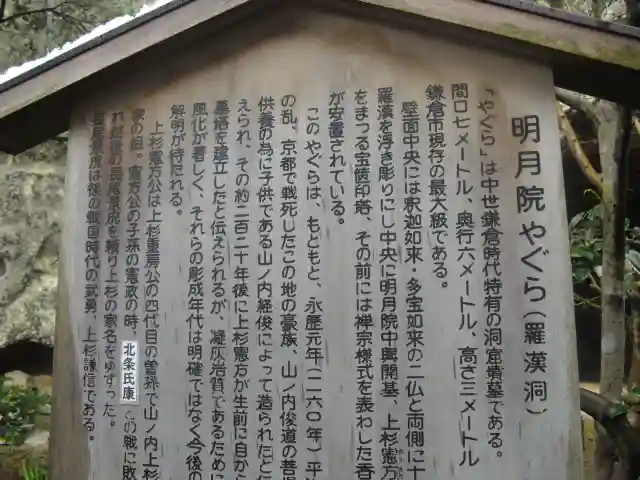 明月院やぐら（羅漢洞）
「やぐら」は中世鎌倉時代特有の洞窟墳墓である。
間口七メートル、奥行六メートル、高さ三メートル
鎌倉市現存の最大級である。
壁面中央には釈迦如来・多宝如来の二仏と両側に十
羅漢を浮き彫りにし中央に明月院中興開基、上杉憲方
をまつる宝篋印塔、その前には禅宗様式を表わした香
が安置されている。
このやぐらは、もともと、永歴元年（一一六〇年）平
の乱、京都で戦死したこの地の豪族、山ノ内俊道の菩
供養の為に子供である山ノ内経俊によって造られたと伝
えられ、その約二百二十年後に上杉憲方が生前に自から
墓塔を建立したと伝えられるが、凝灰岩質であるために
風化が著しく、それらの彫成年代は明確ではなく今後の
解明が待たれる。
上杉憲方公は上杉重房公の四代目の曽孫で山ノ内上杉
家の組。憲方公の子孫の憲政の時、北条氏康との戦に敗
れ越後の長尾景虎を頼り上杉の家名をゆずった。
長尾景虎は後の戦国時代の武勇、上杉謙信である。